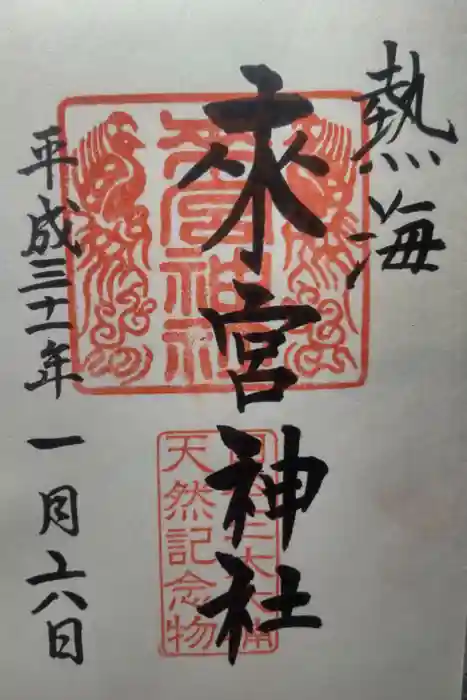 熱海
來宮神社
平成三十一年一月六日
來宮神社
天然記念物